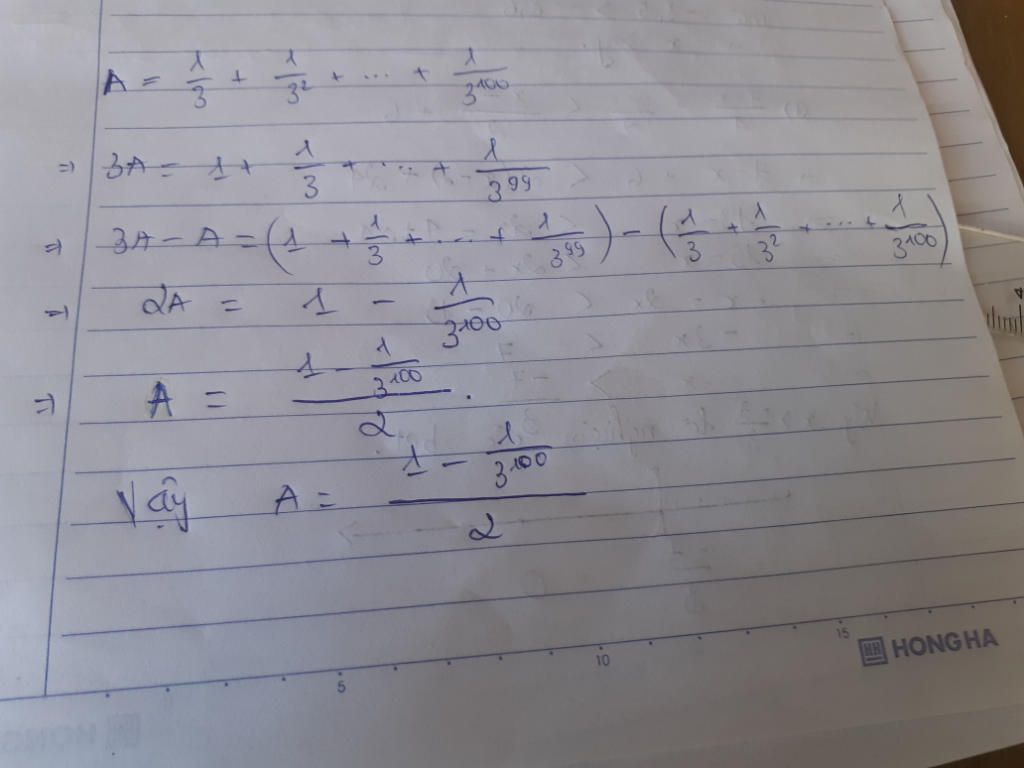 A = 1/3 + 1/3² + ... + 1/3¹⁰⁰
=> 3A = 1 + 1/3 + ... + 1/3⁹⁹
=> 3A - A = (1 + 1/3 + ... + 1/3⁹⁹) - (1/3 + 1/3² + ... + 1/3¹⁰⁰)
=> 2A = 1 - 1/3¹⁰⁰
=> A = (1 - 1/3¹⁰⁰)/2.
Vậy A = (1 - 1/3¹⁰⁰)/2
5 10 15
HONG HA